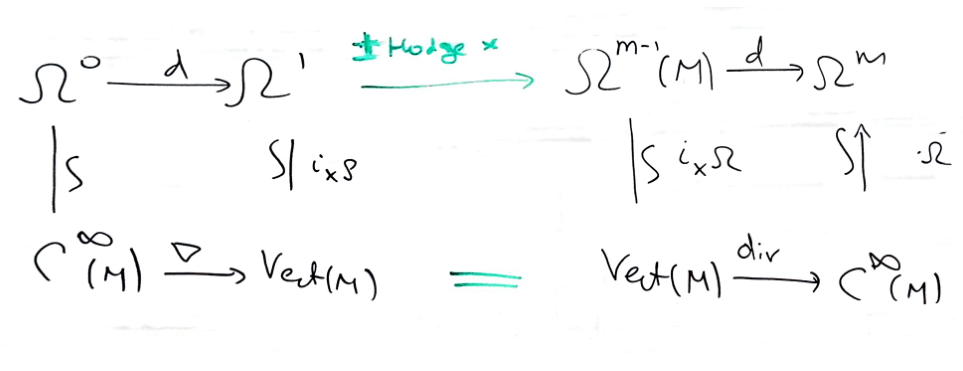 Ω⁰ —d→ Ω¹ ± Hodge * → Ωᵐ⁻¹(M) —d→ Ωᵐ
|S S| iₓg |S iₓΩ S↑ ·Ω
C^∞(M) —∇→ Vect(M) = Vect(M) —div→ C^∞(M)